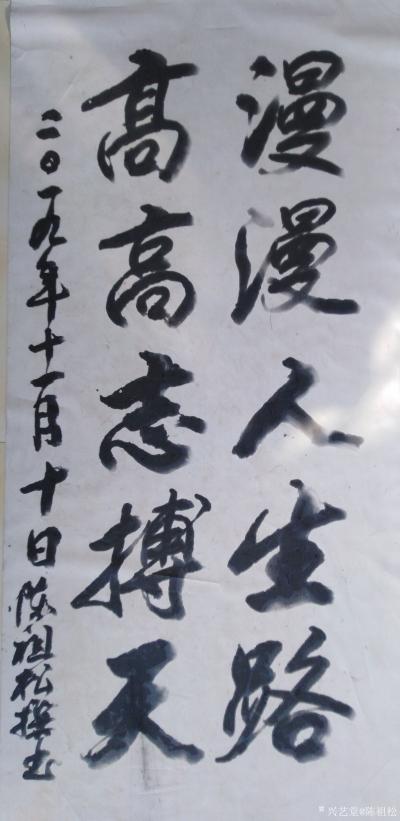 漫漫人生路
高高志搏天
二〇一九年十一月十日陈祖松撰书
兴艺堂@陈祖松